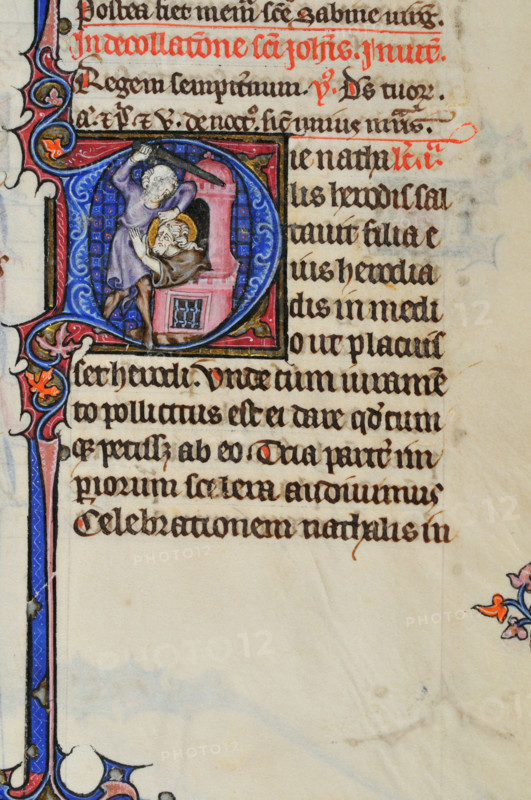 Postea fiet mem̄. sc̄e Sabine uirḡ.
In decollatōne sc̄i ioh̄is. Inuit̄.
Regem sempit̄num. p̄s. D̄s tuor̄.
a. ꝛ p̄s ꝛ v̄. de noct̄. sic̄ unius mr̄is.
Die natha lc̄. i.
lis herodis sal
tauit filia e
iius herodia
dis in medi
o ut placuis
set herodi. Vnde cum iuramē
to pollicitus est ei dare qd̄cum
qꝫ petissꝫ ab eo. Tria parit̄ im
piorum scelera audiuimus
Celebrationem nathalis in
PHOTO12